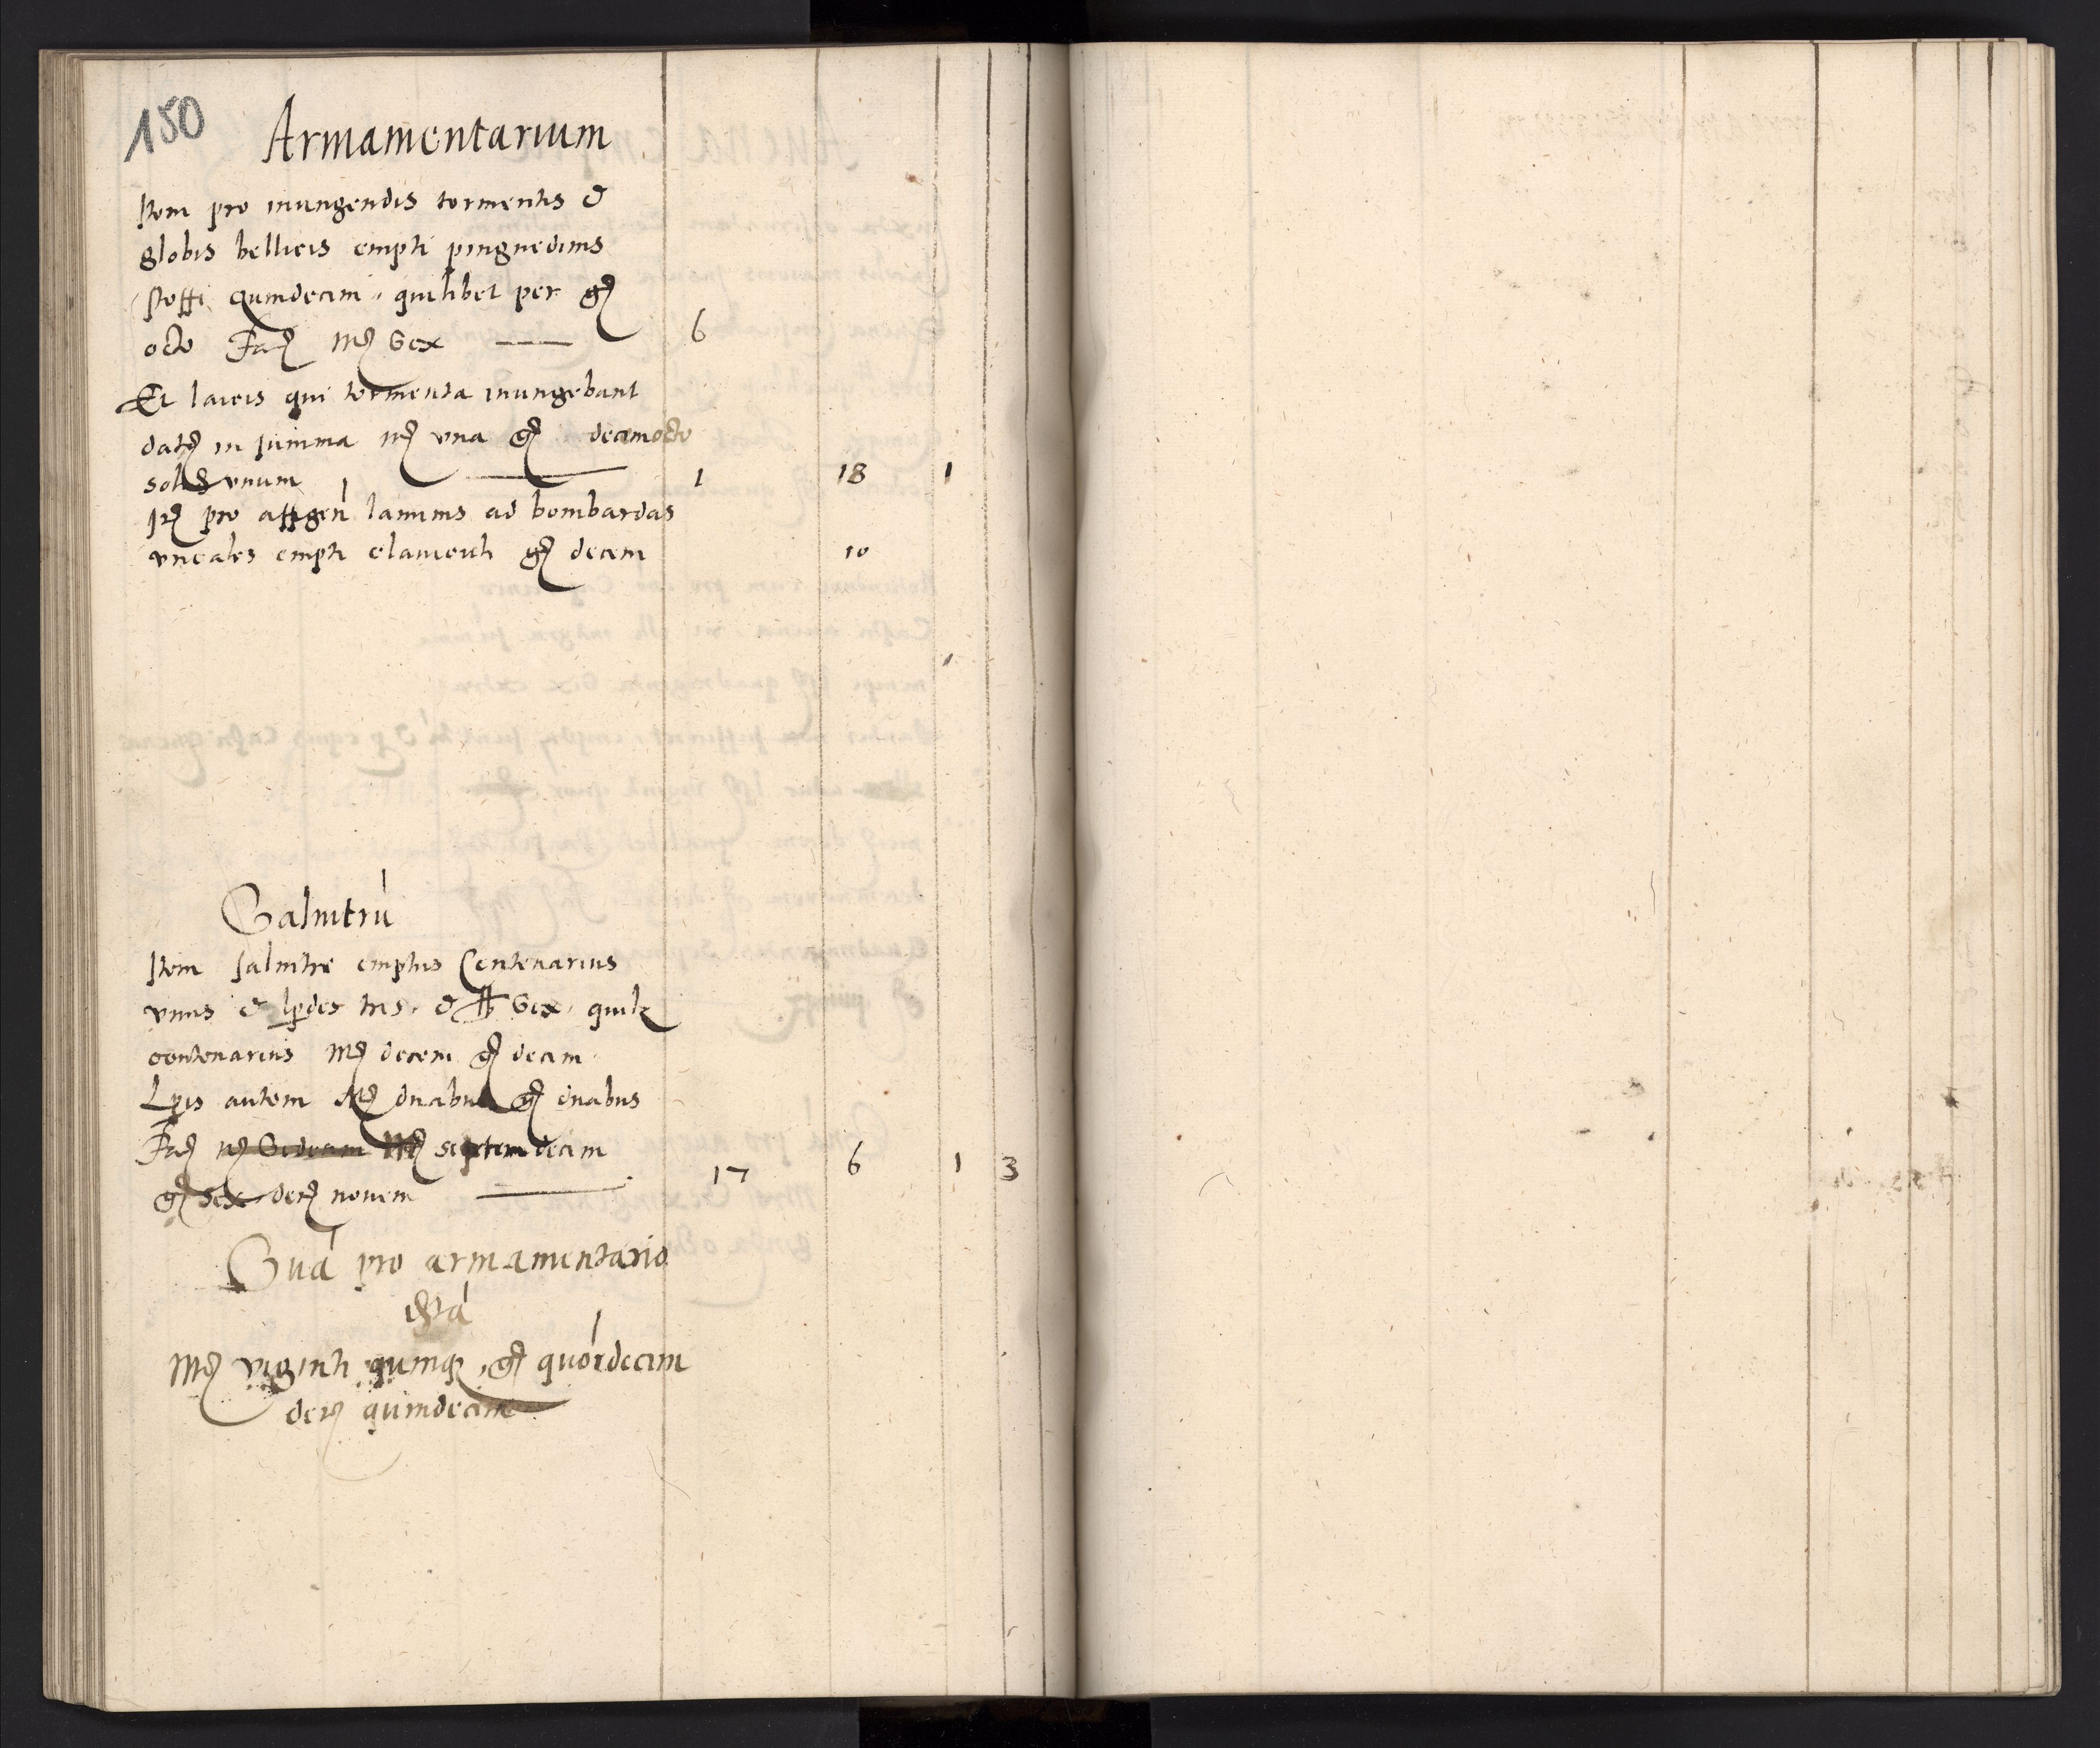 150
Armamentarium
Item pro inungendis tormentis et
globis bellicis empti pingnedinis
stoffi quindecim, quilibet per g͛
octo Fac͛ M͛ Sex 6
Et laicis qui tormenta inungebant
dat͛ in summa m͛ vna g͛ decemocto
solid͛ vnum 1 18 1
It͛ pro affigen̄ laminis ad bombardas
vncales empti clauiculi g͛ decem 10
Salnitrū
Item salnitre emptus Centenarius
vnus et lpdes tres, et ℔ Sex, quilz
centenarius M͛ decem g͛ decem
Lpis autem M͛ duabus g͛ duabus
Fac͛ M͛ septemdecim
g͛ sex den͛ nouem 17 6 1 3
Suā pro armamentario
extā
M͛ viginti quinqz g͛ quōrdecim
den͛ quindecim